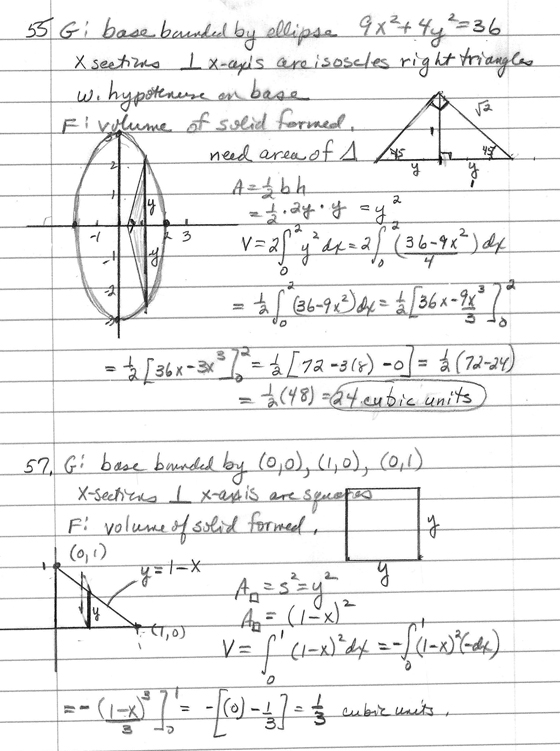 55 G: base bounded by ellipse 9x²+4y²=36
X sections ⊥ x-axis are isoscles right triangles
w. hypotenuse on base
F: volume of solid formed.
√2
45 1 45
y y
1
need area of Δ
A = ½bh
= ½·2y·y = y²
V = 2∫₀² y²dx = 2∫₀² (36-9x²)/4 dx
3
2
1
-1 2 3
-1
-2
-3
y
y
= ½∫₀² (36-9x²)dx = ½[36x-9x³/3]₀²
= ½[36x-3x³]₀² = ½[72-3(8)-0] = ½(72-24)
= ½(48) = 24 cubic units
57. G: base bounded by (0,0), (1,0), (0,1)
X-sections ⊥ x-axis are squares
F: volume of solid formed.
y
y
(0,1)
1
y=1-x
y
(1,0)
A□ = s² = y²
A□ = (1-x)²
V = ∫₀¹ (1-x)²dx = -∫₀¹ (1-x)²(-dx)
= -(1-x)³/3]₀¹ = -[(0)-1/3] = 1/3 cubic units.